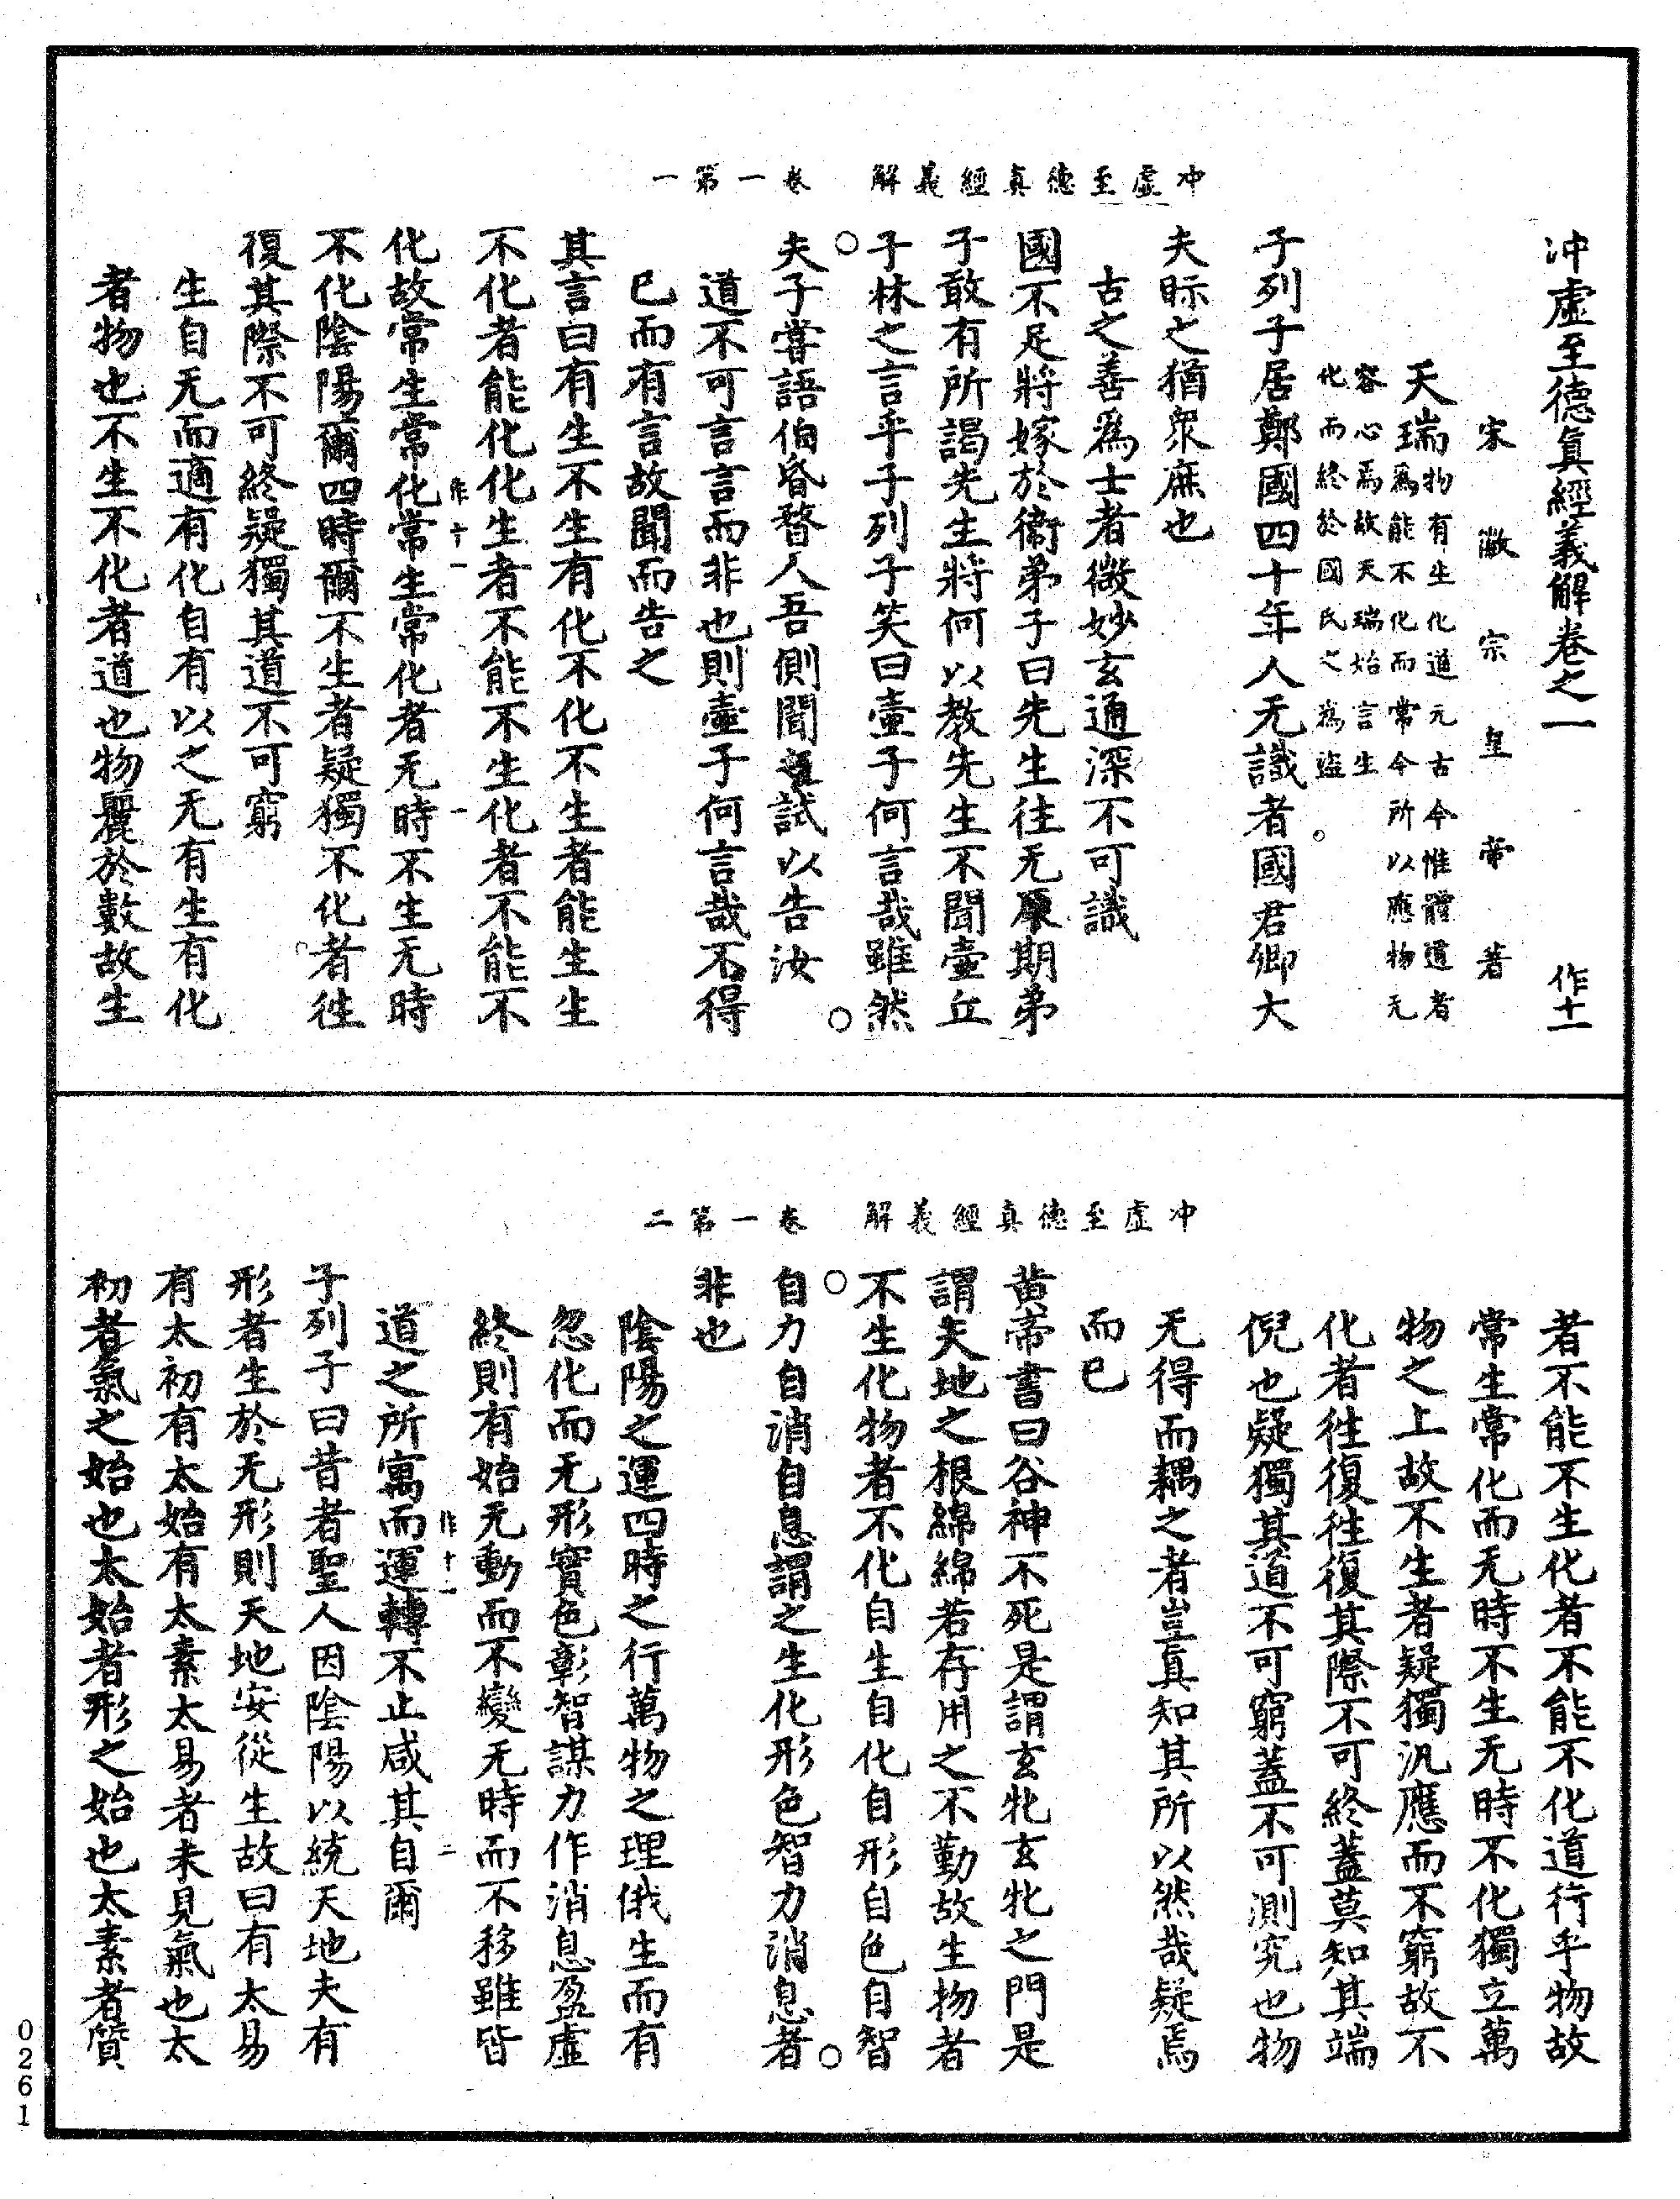 冲虛至德真經義解 卷一第一
冲虛至德真經義解卷之一 作十一
宋徽宗皇帝著
天瑞物有生化道无古今惟體道者
爲能不化而常今所以應物无
容心焉故天瑞始言生
化而終於國氏之爲盜
子列子居鄭國四十年人无識者國君卿大
夫眎之猶衆庶也
古之善爲士者微妙玄通深不可識
國不足將嫁於衞弟子曰先生往无厡期弟
子敢有所謁先生將何以教先生不聞壷丘
子林之言乎子列子笑曰壷子何言哉雖然
夫子嘗語伯昏瞀人吾側聞之試以告汝
道不可言言而非也則壷子何言哉不得
已而有言故聞而告之
其言曰有生不生有化不化不生者能生生
不化者能化化生者不能不生化者不能不
作十一 一
化故常生常化常生常化者无時不生无時
不化陰陽爾四時爾不生者疑獨不化者徃
復其際不可終疑獨其道不可窮
生自无而適有化自有以之无有生有化
者物也不生不化者道也物麗於數故生
冲虛至德真經義解 卷一第二
者不能不生化者不能不化道行乎物故
常生常化而无時不生无時不化獨立萬
物之上故不生者疑獨汎應而不窮故不
化者徃復徃復其際不可終蓋莫知其端
倪也疑獨其道不可窮蓋不可測究也物
无得而耦之者豈真知其所以然哉疑焉
而已
黃帝書曰谷神不死是謂玄牝玄牝之門是
謂天地之根綿綿若存用之不勤故生物者
不生化物者不化自生自化自形自色自智
自力自消自息謂之生化形色智力消息者
非也
陰陽之運四時之行萬物之理俄生而有
忽化而无形實色彰智謀力作消息盈虛
終則有始无動而不變无時而不移雖皆
作十一 二
道之所寓而運轉不止咸其自爾
子列子曰昔者聖人因陰陽以統天地夫有
形者生於无形則天地安從生故曰有太易
有太初有太始有太素太易者未見氣也太
初者氣之始也太始者形之始也太素者質
0261